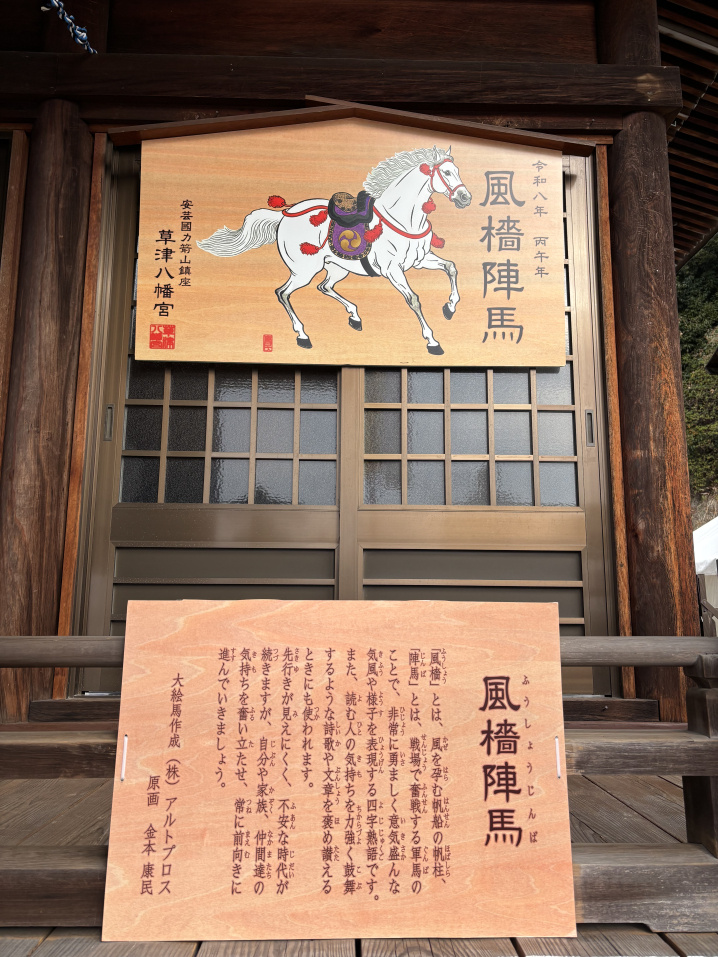 令和八年 丙午年
風檣陣馬
安芸國力箭山鎮座
草津八幡宮
風檣陣馬
ふうしょうじんば
「風檣」とは、風を孕む帆船の帆柱、
「陣馬」とは、戦場で奮戦する軍馬の
ことで、非常に勇ましく意気盛んな
気風や様子を表現する四字熟語です。
また、読む人の気持ちを力強く鼓舞
するような詩歌や文章を褒め讃える
ときにも使われます。
先行きが見えにくく、不安な時代が
続きますが、自分や家族、仲間達の
気持ちを奮い立たせ、常に前向きに
進んでいきましょう。
大絵馬作成 (株)アルトプロス
原画 金本 康民